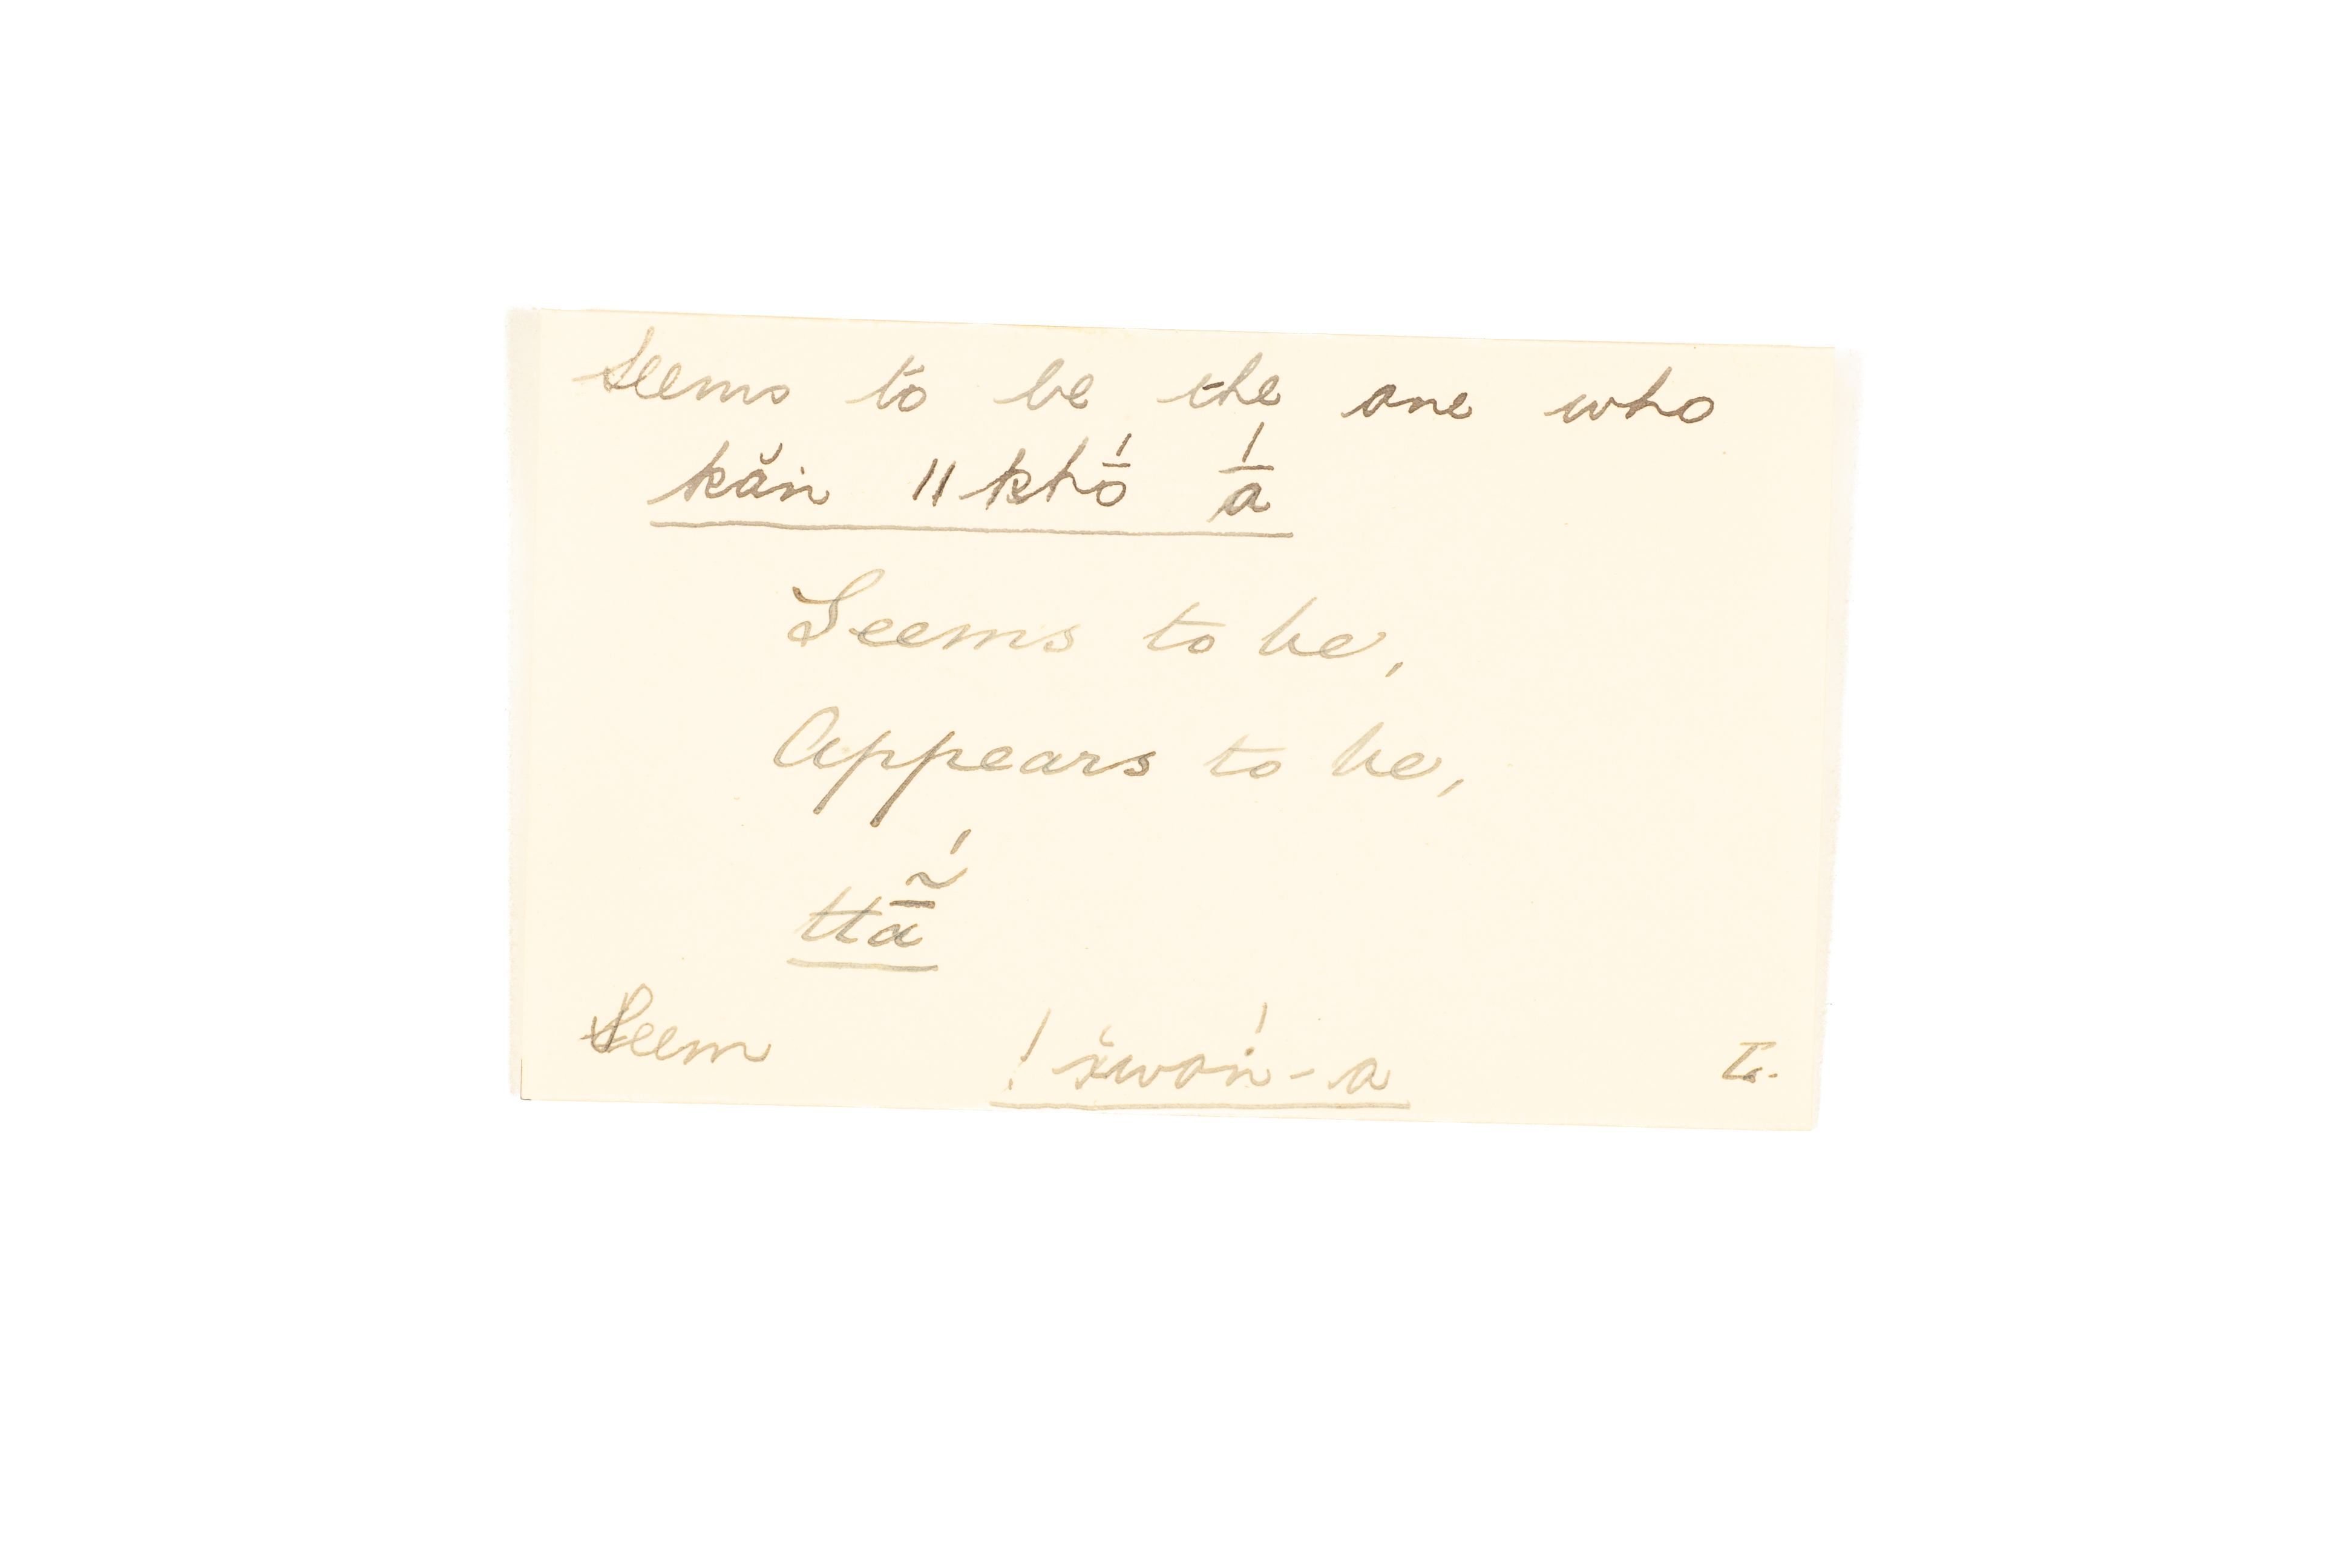 Seems to be the one who
kăin ǁkhṓ ā́
Seems to be,
Appears to be,
ttā̰́
Seem ! x̆wóṅ-a L.